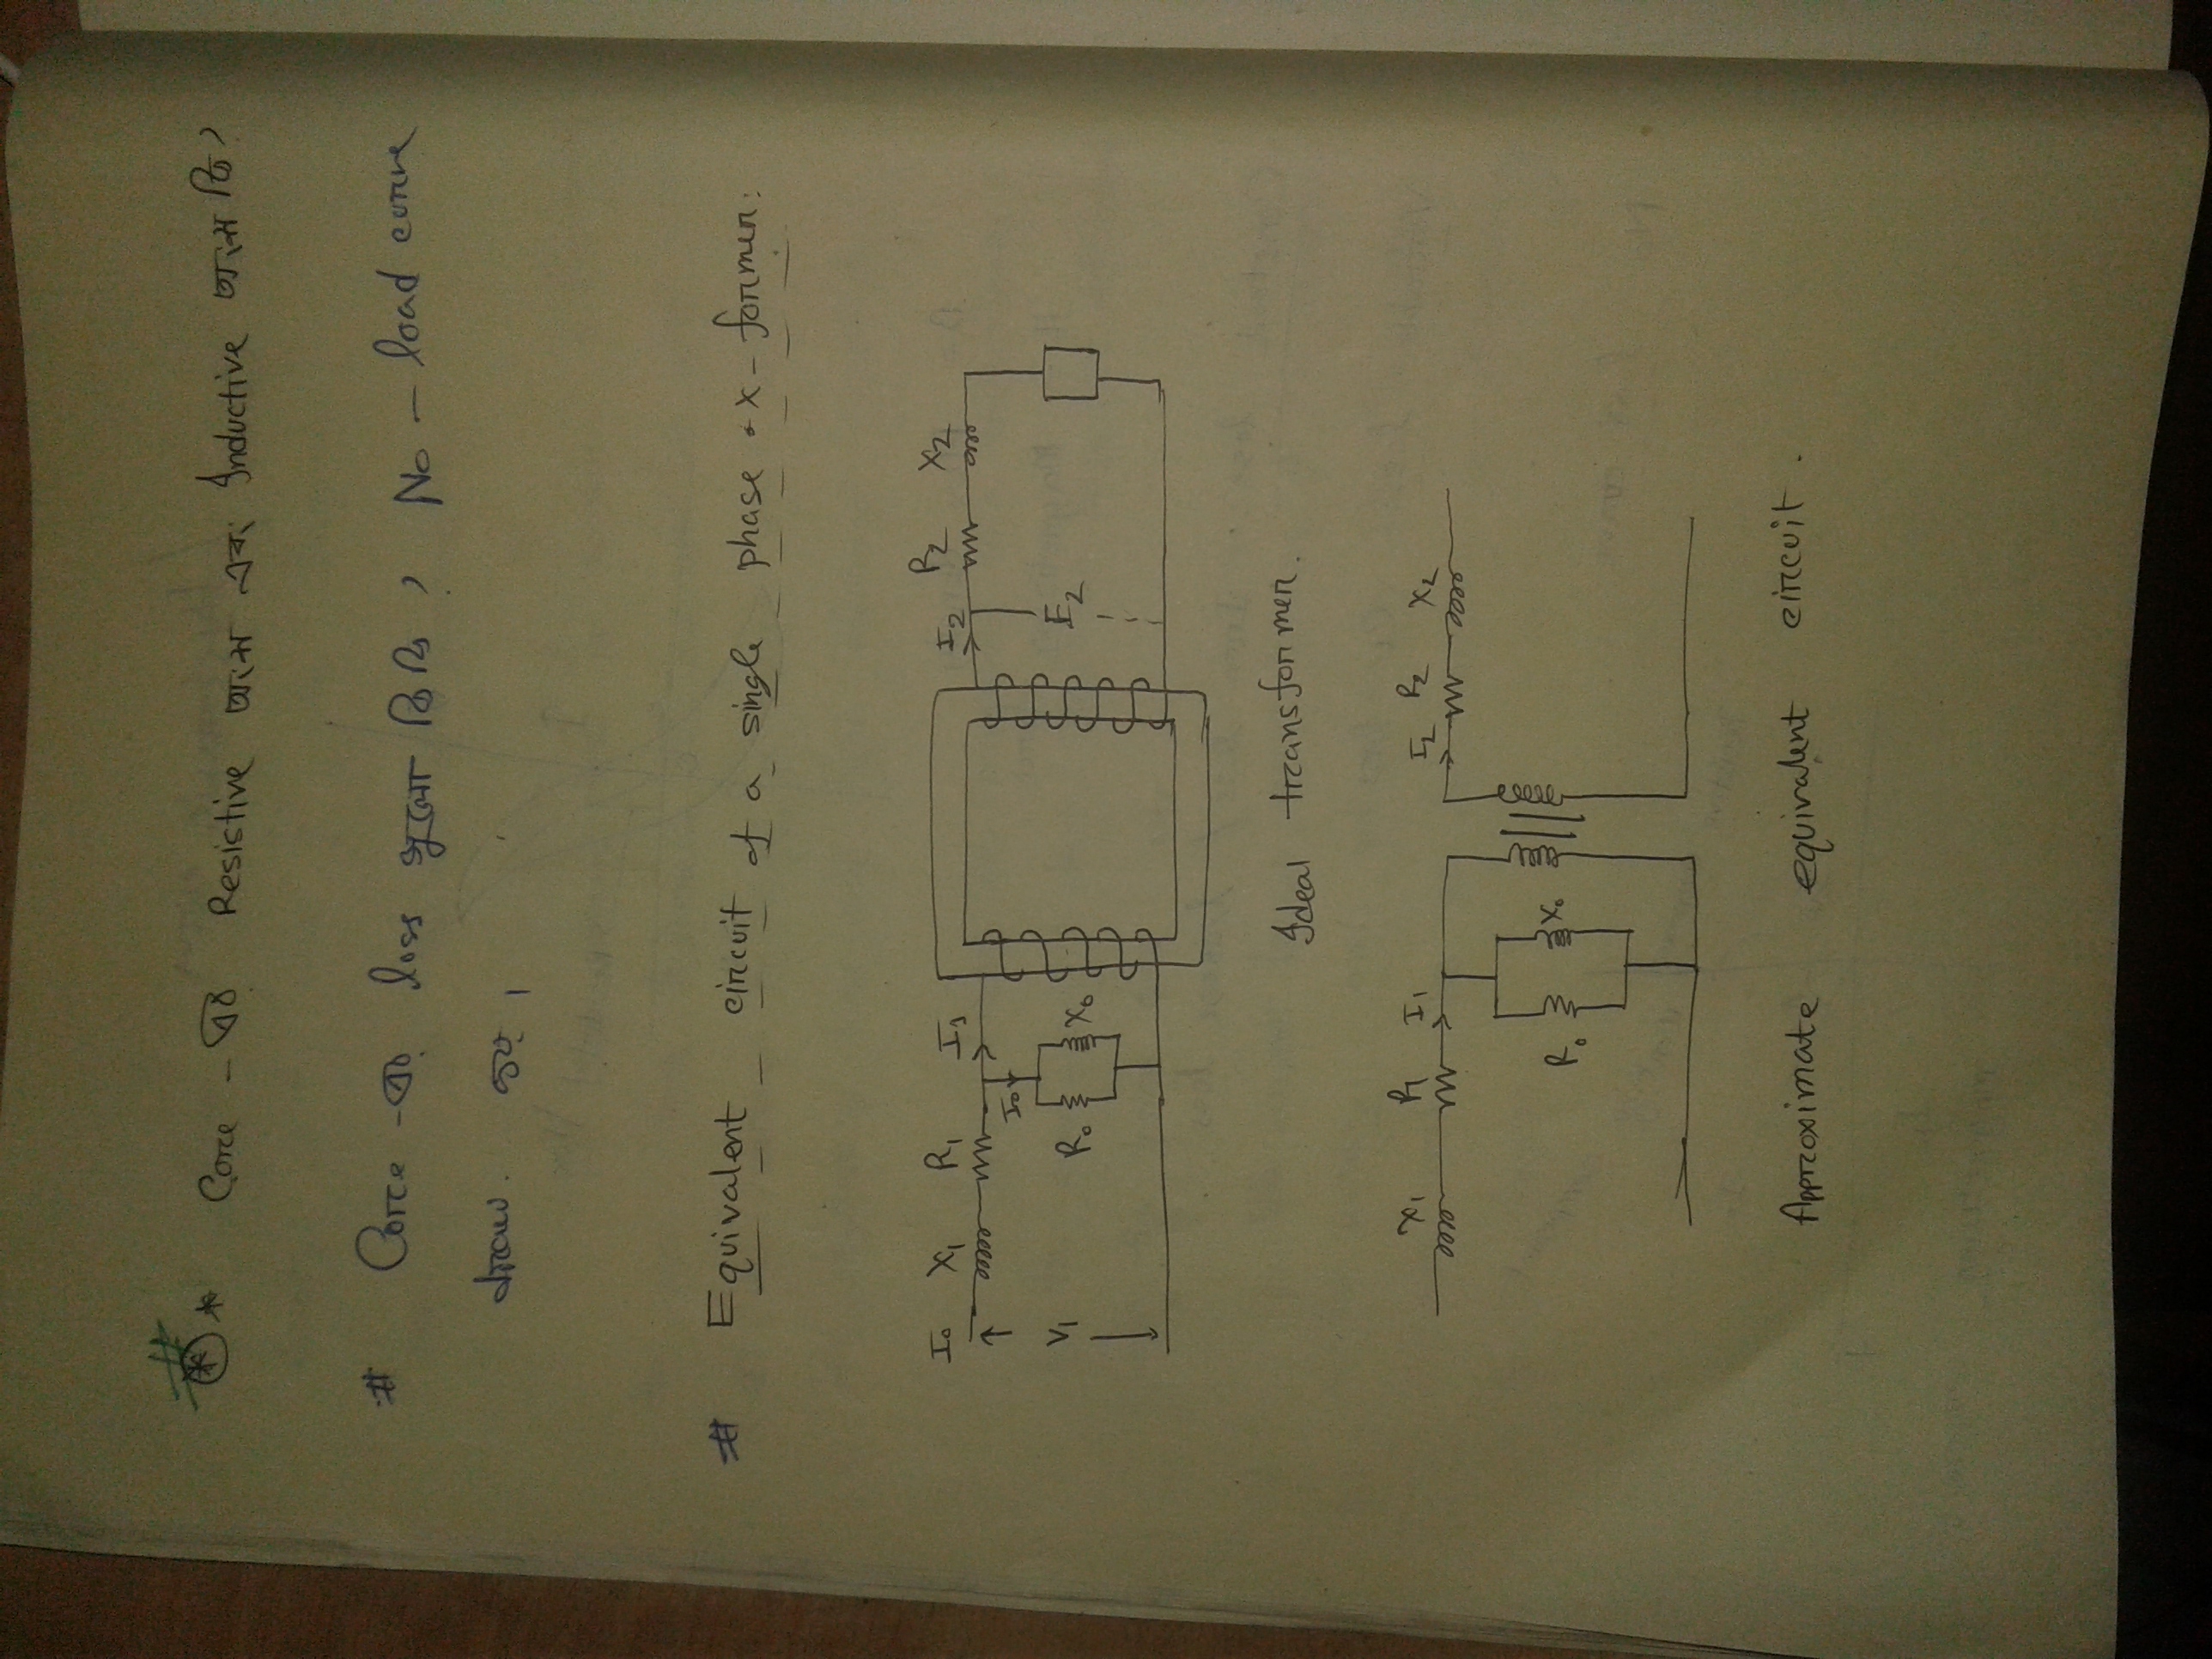 # ** Core - এর Resistive অংশ এবং Inductive অংশ কি?
# Core - এর loss গুলো কি কি? No - load curve
draw. কর।
# Equivalent circuit of a single phase x-former:
I₀ X₁ R₁ I₁ I₂ R₂ X₂
I₀
V₁ R₀ X₀ E₂
Ideal transformer.
X₁ R₁ I₁ I₂ R₂ X₂
R₀ X₀
Approximate equivalent circuit.